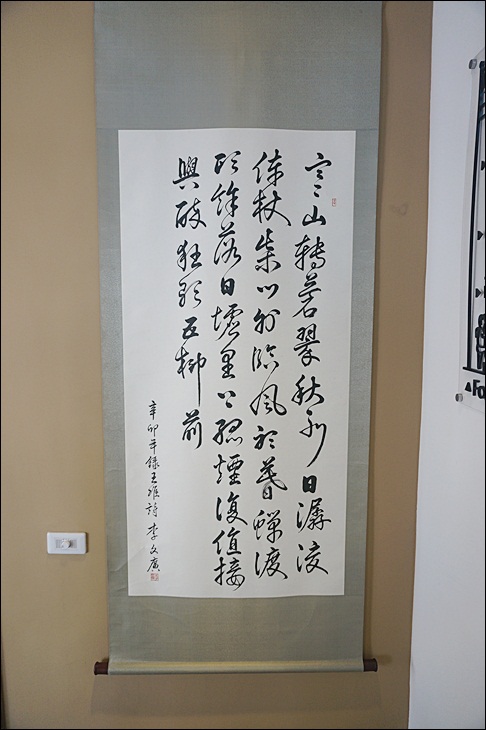 寒山轉蒼翠秋水日潺湲
倚杖柴門外臨風聽暮蟬渡
頭餘落日墟里上孤煙復值接
輿醉狂歌五柳前
辛卯年錄王維詩 李文廣